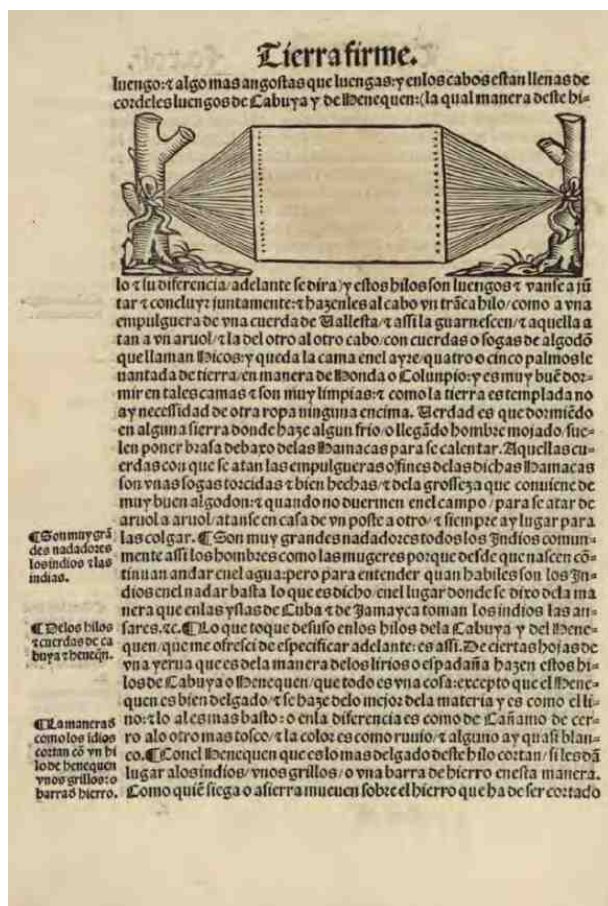 Tierra firme.
luengo: ⁊ algo mas angostas que luengas: y enlos cabos estan llenas de
cordeles luengos de Cabuya y de Henequen: (la qual manera deste hi-
lo ⁊ su diferencia/adelante se dira) y estos hilos son luengos ⁊ vanse a jũ
tar ⁊ concluyr juntamente: ⁊ hazenles al cabo vn trãca hilo/como a vna
empulguera de vna cuerda de Vallesta/⁊ assi la guarnescen/⁊ aquella a
tan a vn aruol/⁊ la del otro al otro cabo/con cuerdas o sogas de algodõ
que llaman Hicos: y queda la cama enel ayre/quatro o cinco palmos le
uantada de tierra/en manera de Honda o Colunpio: y es muy buẽ dor-
mir en tales camas ⁊ son muy limpias: ⁊ como la tierra es templada no
ay necessidad de otra ropa ninguna encima. Verdad es que dormiẽdo
en alguna sierra donde haze algun frio/o llegãdo hombre mojado/sue-
len poner brasa debaxo delas Hamacas para se calentar. Aquellas cu-
erdas con que se atan las empulgueras o fines delas dichas Hamacas
son vnas sogas torcidas ⁊ bien hechas/⁊ dela grosseza que conviene de
muy buen algodon: ⁊ quando no duermen enel campo/para se atar de
aruol a aruol/atanse en casa de vn poste a otro/⁊ siempre ay lugar para
las colgar. ¶ Son muy grandes nadadores todos los Indios comun-
mente assi los hombres como las mugeres porque desde que nascen cõ-
tinuan andar enel agua: pero para entender quan habiles son los In-
dios enel nadar basta lo que es dicho/enel lugar donde se dixo dela ma
nera que enlas yslas de Cuba ⁊ de Jamayca toman los indios las an-
sares. ⁊c. ¶ Lo que toque desuso enlos hilos dela Cabuya y del Hene-
quen/que me ofresci de especificar adelante: es assi. De ciertas hojas de
vna yerua que es dela manera delos lirios o espadaña hazen estos hi-
los de Cabuya o Henequen/que todo es vna cosa: excepto que el Hene-
quen es bien delgado/⁊ se haze delo mejor dela materia y es como el li-
no: ⁊ lo al es mas basto: o enla diferencia es como de Cañamo de cer-
ro alo otro mas tosco/⁊ la color es como ruuio/⁊ alguno ay quasi blan-
co. ¶ Conel Henequen que es lo mas delgado deste hilo cortan/si les dã
lugar alos indios/vnos grillos/o vna barra de hierro en esta manera.
Como quiẽ siega o asierra mueuen sobre el hierro que ha de ser cortado
¶ Son muy grã
des nadadores
los indios ⁊ las
indias.
¶ Delos hilos
⁊ cuerdas de ca
buya ⁊ heneqn̄.
¶ La manera d̄
como los idios
cortan cõ vn hi
lo de henequen
vnos grillos: o
barras d̄ hierro.